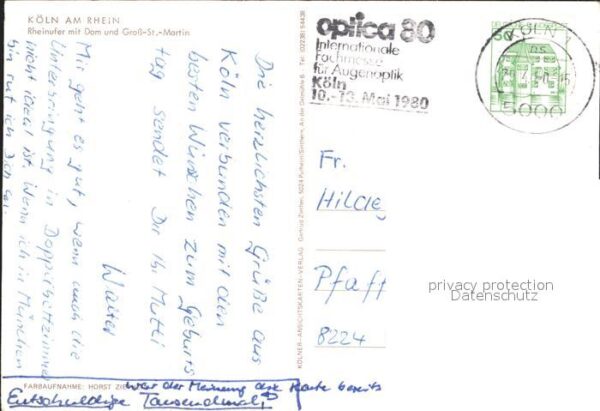 KÖLN AM RHEIN
Rheinufer mit Dom und Groß-St.-Martin
Die herzlichsten Grüße aus
Köln verbunden mit den
besten Wünschen zum Geburts
tag sendet Dir Ihr Mutti
Walter
Mir geht es gut, wenn auch die
Unterbringung in Doppelbettzimmer
nicht ideal ist. Wenn ich in München
bin ruf ich Dich an.
FARBAUFNAHME: HORST
war der Meinung die Karte bereits
Entschuldige Tausendmal,
KÖLNER-ANSICHTSKARTEN-VERLAG
optica 80
Internationale
Fachmesse
für Augenoptik
Köln
10.-13. Mai 1980
KÖLN
5000
50
Fr.
Hilde
Pfaff
8224
privacy protection
Datenschutz